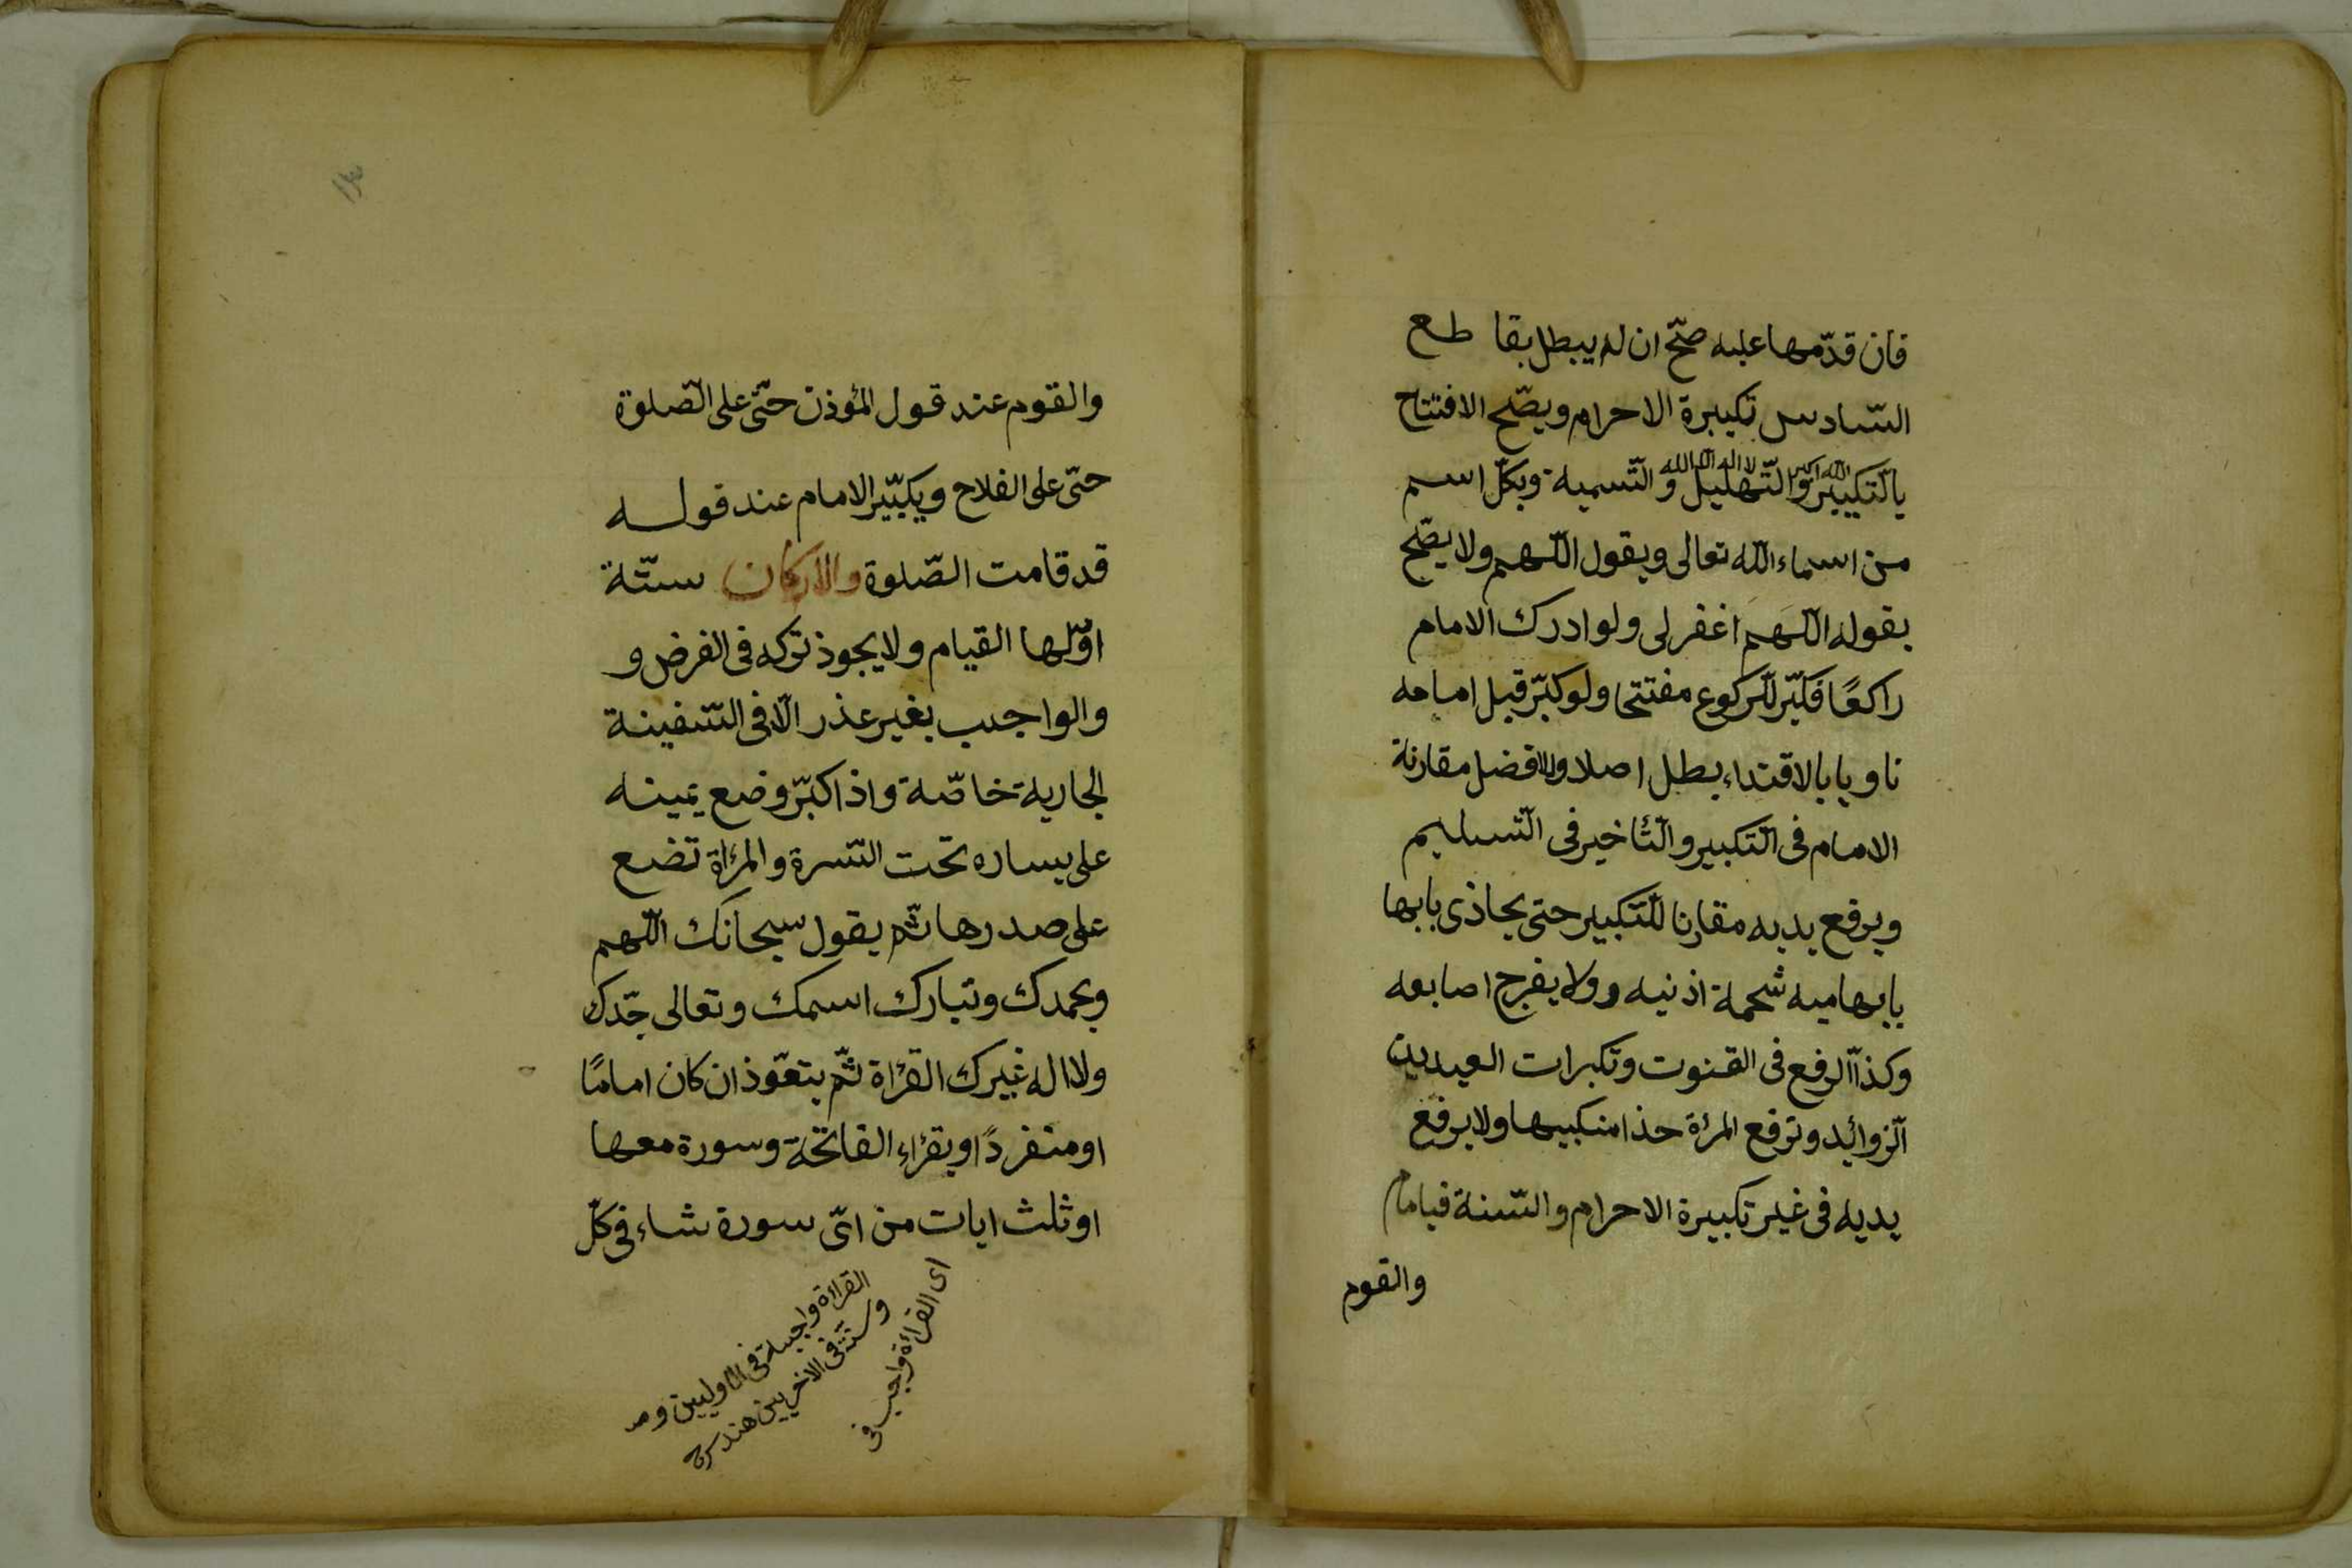 فان قدّمها عليه صحّ ان لم يبطل بقا طع
السّادس تكبيرة الاحرام ويصّح الافتتاح
بالتّكبير والتّهليل والتّسمية وبكلّ اسم
الله اكبر لا اله الا الله
من اسماء الله تعالى ويقول اللّهم ولا يصّح
بقوله اللّهم اغفر لى ولو ادرك الامام
راكعًا فكبّر للّركوع مفتتحا ولو كبّر قبل امامه
ناويا بالاقتداء بطل اصلا والافضل مقارنة
الامام فى التّكبير والتّأخير فى التّسليم
ويرفع يديه مقارنا للتّكبير حتى يحاذى بابها
بابهاميه شحمة اذنيه وولا يفرج اصابعه
وكذا الّرفع فى القنوت وتكبرات العيدين
الّزوائد وترفع المرٔة حذا منكبيها ولا يرفع
يديه فى غير تكبيرة الاحرام والسّنة قيام امام
والقوم
١٣
والقوم عند قول المؤذن حتّى على الصّلوة
حتّى على الفلاح ويكبّير الامام عند قوله
قد قامت الصّلوة والاركان ستّة
اوّلها القيام ولا يجوذ تركه فى الفرض و
والواجب بغير عذر الّا فى السّفينة
الجارية خاصّة واذا كبّر وضع يمينه
على يساره تحت السّرة والمرٔاة تضع
على صدرها ثّم يقول سبحانك اللّهم
وبحمدك وتبارك اسمك وتعالى جّدك
ولا اله غيرك القرٔاة ثّم يتعّوذ ان كان امامًا
او منفردًا ويقرٔاء الفاتحة وسورة معها
او ثلث ايات من اىّ سورة شاء فى كلّ
اى القرأة واجب فى
القرأة واجبة فى الاوليين و
وسنّة فى الاخريين